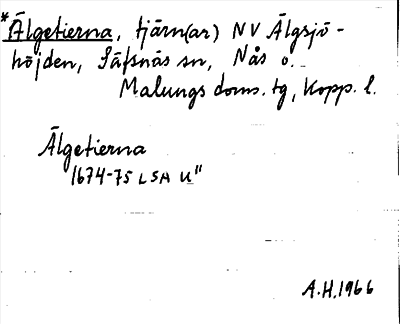 *Älgetierna, tjärn(ar) NV Älgsjö-
höjden, Säfsnäs sn, Nås o.
Malungs doms. tg, Kopp. l.
Älgetierna
1674-75 LSA U"
A.H. 1966